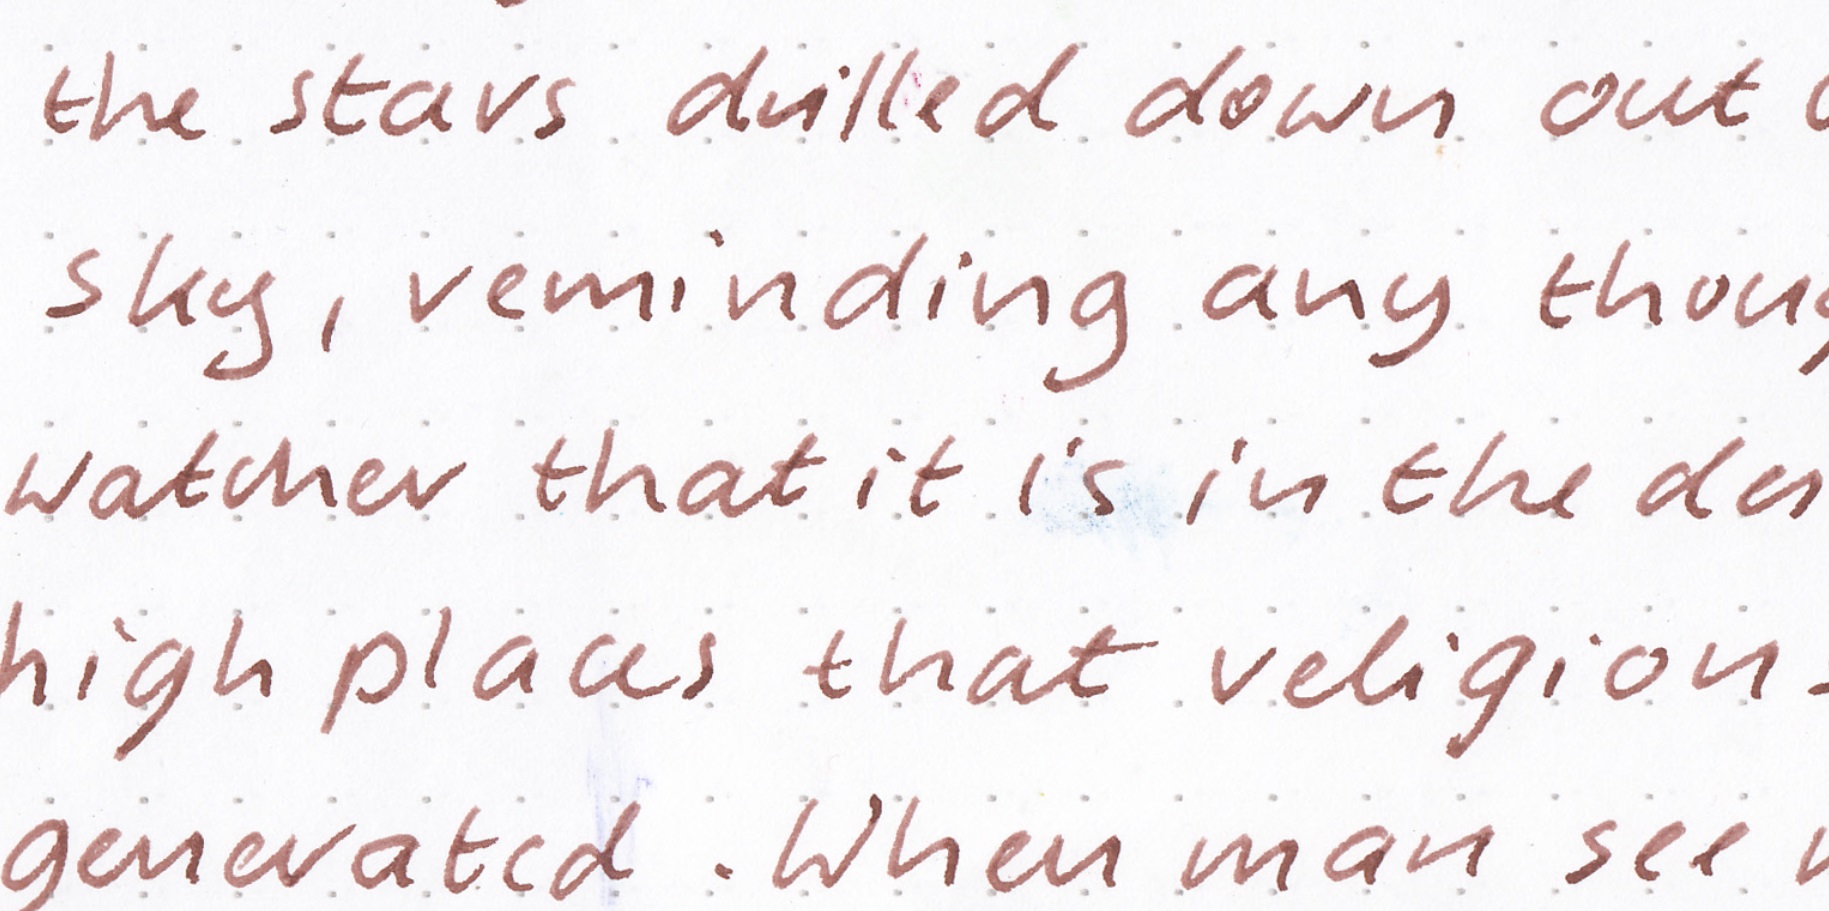 the stars drilled down out
sky, reminding any thoug
watcher that it is in the
high places that religions
generated. When man see